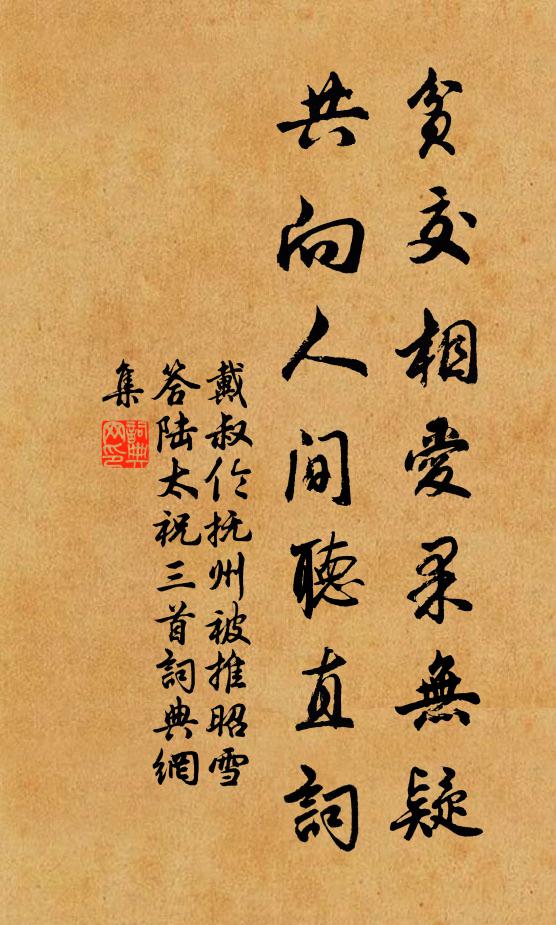 貧交相愛果無疑
共向人間聽直詞
戴叔伦抚州被推昭雪
答陆太祝三首詞典網
集
詞典
网印